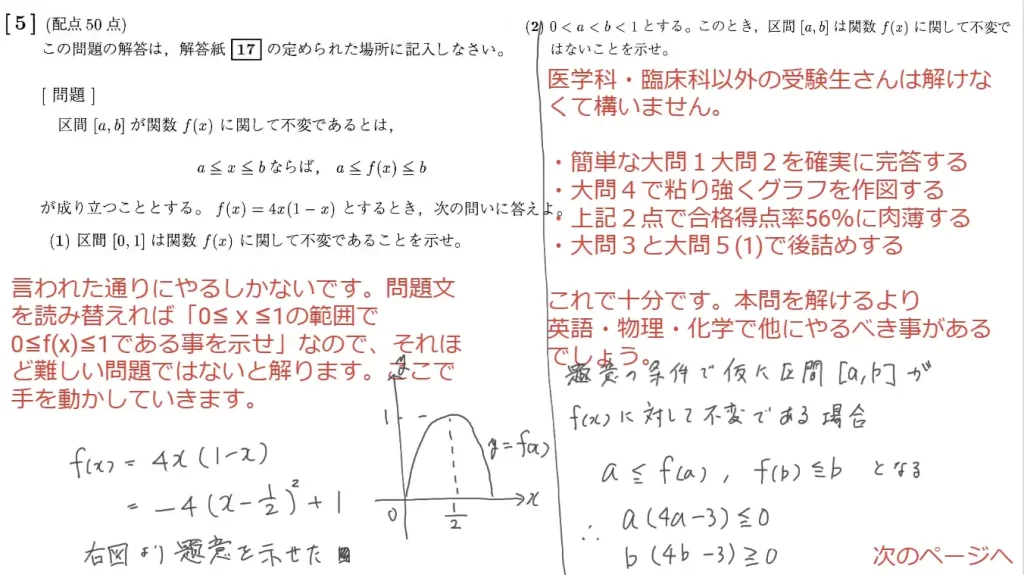 [5] (配点 50 点)
この問題の解答は,解答紙 17 の定められた場所に記入しなさい。
[ 問題 ]
区間 [a, b] が関数 f(x) に関して不変であるとは,
a ≦ x ≦ b ならば, a ≦ f(x) ≦ b
が成り立つこととする。 f(x) = 4x(1 − x) とするとき,次の問いに答えよ。
(1) 区間 [0, 1] は関数 f(x) に関して不変であることを示せ。
言われた通りにやるしかないです。問題文
を読み替えれば「0≦ x ≦1の範囲で
0≦f(x)≦1である事を示せ」なので、それほ
ど難しい問題ではないと解ります。ここで
手を動かしていきます。
f(x) = 4x(1−x)
= −4(x−1/2)²+1
右図より題意を示せた
y
1
y=f(x)
0
1/2
x
(2) 0 < a < b < 1 とする。このとき,区間 [a, b] は関数 f(x) に関して不変で
はないことを示せ。
医学科・臨床科以外の受験生さんは解けな
くて構いません。
・簡単な大問1大問2を確実に完答する
・大問4で粘り強くグラフを作図する
・上記2点で合格得点率56%に肉薄する
・大問3と大問5(1)で後詰めする
これで十分です。本問を解けるより
英語・物理・化学で他にやるべき事がある
でしょう。
題意の条件で仮に区間[a,b]が
f(x)に対して不変である場合
a≦f(a), f(b)≦b となる
∴ a(4a−3)≦0
b(4b−3)≧0
次のページへ